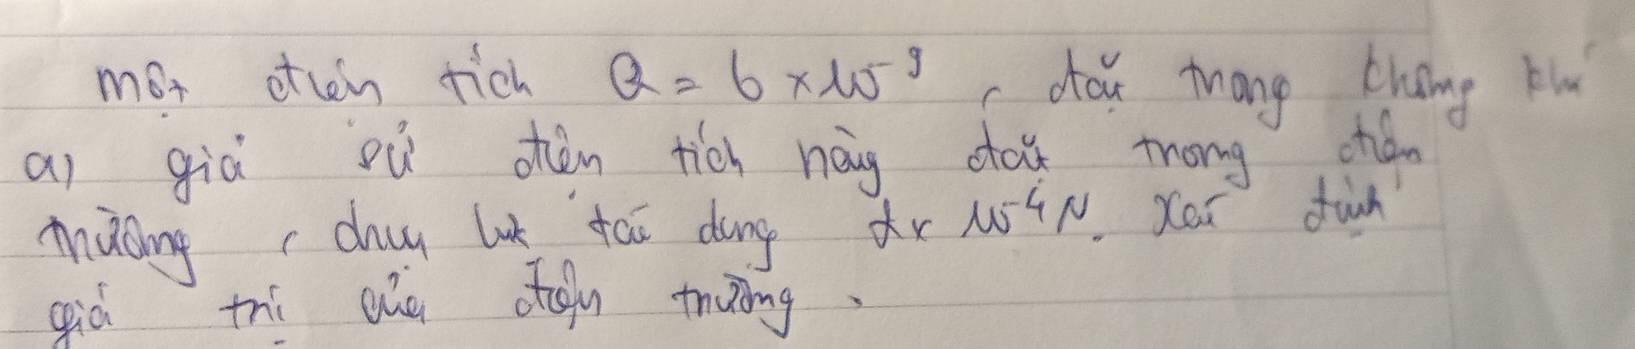 một điện tích Q = 6 × 10⁻⁹, đặt trong không khí
a) giả sử điện tích này đặt trong điện
trường, chịu lực tác dụng 10⁻⁴N. Xác định
giá trị của điện trường.